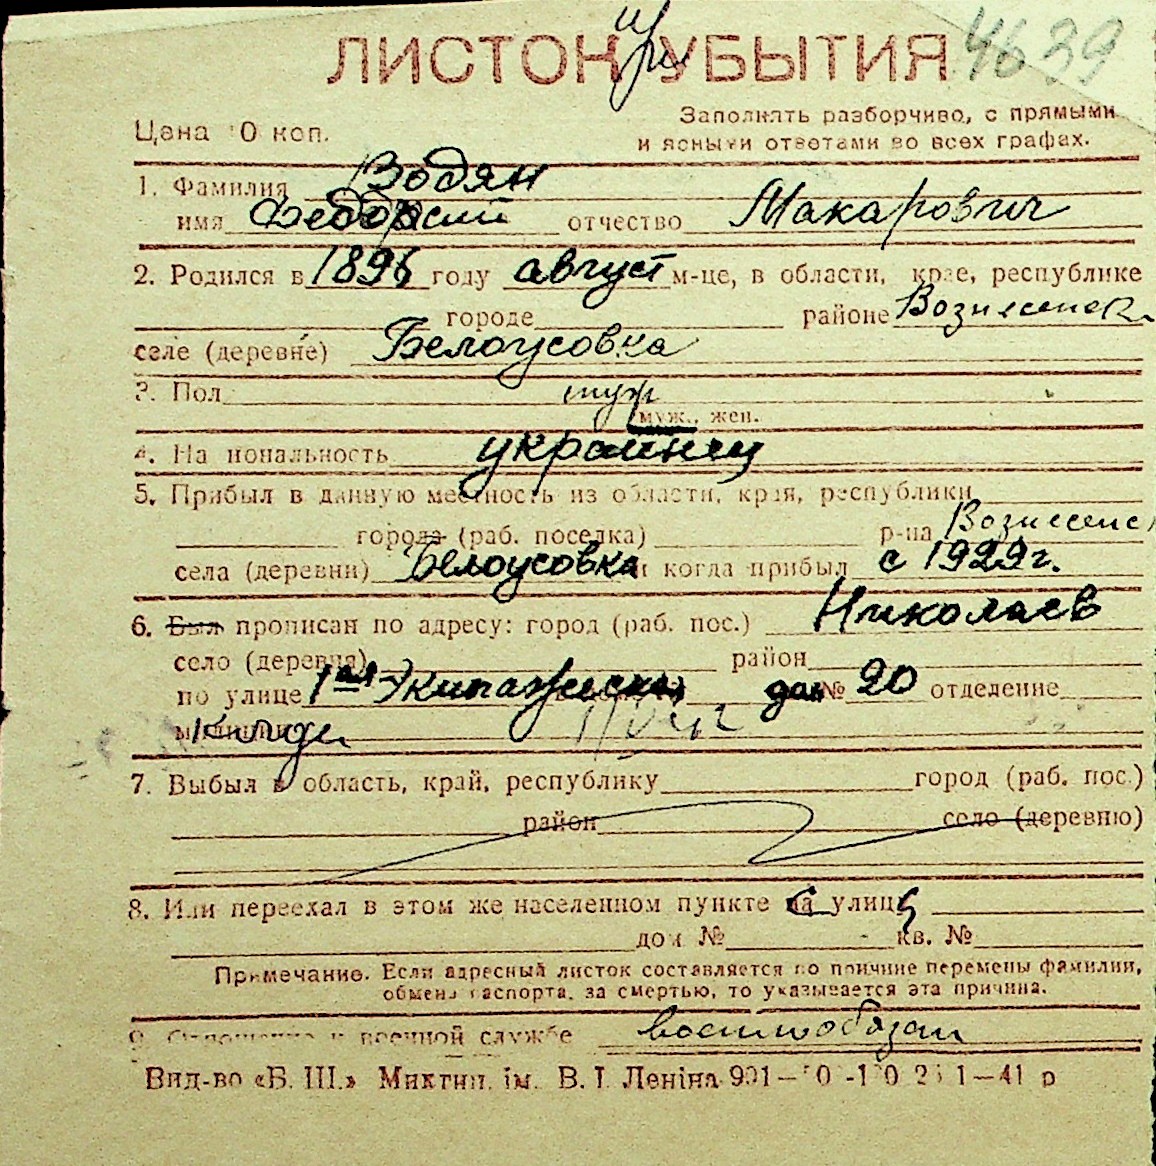 ЛИСТОК при УБЫТИЯ 4639
Цена 10 коп.
Заполнять разборчиво, с прямыми
и ясными ответами во всех графах.
1. Фамилия Водян
имя отчество Макарович
2. Родился в 1896 году август м-це, в области, крае, республике
городе районе Вознесенск
селе (деревне) Белоусовка
3. Пол муж
муж., жен.
4. Национальность украинец
5. Прибыл в данную местность из области, края, республики
города (раб. поселка) р-на Вознесенс
села (деревни) Белоусовка и когда прибыл с 1929 г.
6. Был прописан по адресу: город (раб. пос.) Николаев
село (деревня) район
по улице 1ая Экипажеская дом № 20 отделение
милиции
7. Выбыл в область, край, республику город (раб. пос.)
район село (деревню)
8. Или переехал в этом же населенном пункте на улицу
дом № кв. №
Примечание. Если адресный листок составляется по причине перемены фамилии,
обмена паспорта, за смертью, то указывается эта причина.
9. Отношение к военной службе военнообязан
Вид-во «Б. Ш.» Миктип. ім. В. І. Леніна 41 р